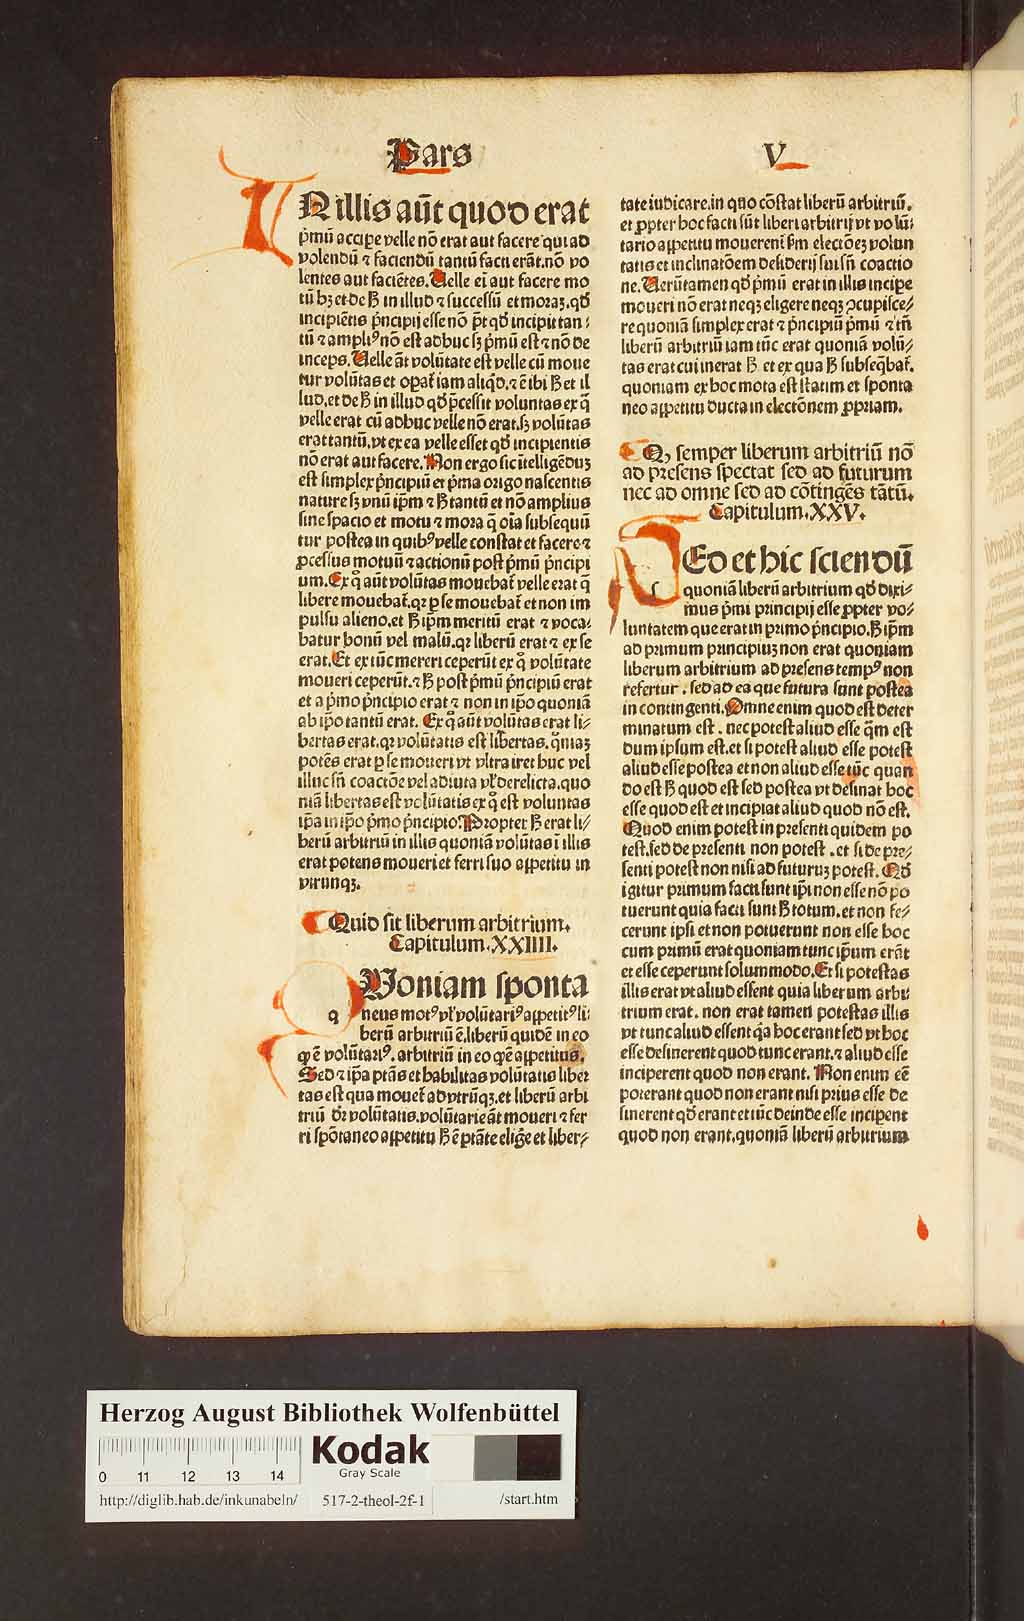 Pars V
IN illis aūt quod erat
p̄mū accipe velle nō erat aut facere qui ad
volendū ⁊ faciendū tantū facti erāt. nō vo
lentes aut faciētes. Uelle ei aut facere mo
tū hꝫ et de ꝧ in illud ⁊ successū et moraꝫ. qd̓
incipiētis p̄ncipij esse nō p̄t qd̓ incipit tan⸗
tū ⁊ ampliꝰ nō est adhuc sꝫ p̄mū est ⁊ nō de
inceps. Uelle āt volūtate est velle cū moue
tur volūtas et oꝑat̄ iam aliqd̓. ⁊ ē ibi ꝧ et il
lud. et de ꝧ in illud qd̓ p̄cessit voluntas ex q̄
velle erat cū adhuc velle nō erat. sꝫ volūtas
erat tantū. vt ex ea velle esset qd̓ incipientis
nō erat aut facere. Non ergo sic ītelligēduꝫ
est simplex p̄ncipiū et p̄ma origo nascentis
nature sꝫ vnū ip̄m ⁊ ꝧ tantū et nō amplius
sine spacio et motu ⁊ mora q̄ oīa subsequū
tur postea in quibꝰ velle constat et facere ⁊
ꝓcessus motuū ⁊ actionū post p̄mū p̄ncipi
um. Ex q̊ aūt volūtas mouebat̄ velle erat q̄
libere mouebat̄. qꝛ ꝑ se mouebat̄ et non im
pulsu alieno. et ꝧ ip̄m meritū erat ⁊ voca⸗
batur bonū vel malū. qꝛ liberū erat ⁊ ex se
erat. Et ex tūc mereri ceperūt ex q̊ volūtate
moueri ceperūt. ⁊ ꝧ post p̄mū p̄ncipiū erat
et a p̄mo p̄ncipio erat ⁊ non in ip̄o quoniā
ab ip̄o tantū erat. Ex q̊ aūt volūtas erat li⸗
bertas erat. qꝛ volūtatis est libertas. q̊niaꝫ
potēs erat ꝑ se moueri vt vltra iret huc vel
illuc sn̄ coactōe vel adiuta vl̓ derelicta. quo
niā libertas est volūtatis ex q̊ est voluntas
ip̄a in ip̄o p̄mo p̄ncipio. Propter ꝧ erat li⸗
berū arbitriū in illis quoniā volūtas ī illis
erat potens moueri et ferri suo appetitu in
vtrunqꝫ.
Quid sit liberum arbitrium.
Capitulum. XXIIII.
QUoniam sponta
q neus motꝰ vl̓ volūtariꝰ appetitꝰ li⸗
berū arbitriū ē. liberū quidē in eo
qꝫ ē volūtariꝰ. arbitriū in eo qꝫ ē appetitus.
Sed ⁊ ip̄a ptās et habilitas volūtatis liber
tas est qua mouet̄ ad vtrūqꝫ. et liberū arbi
triū dr̄ volūtatis. volūtarie āt moueri ⁊ fer
ri spōtaneo appetitu ꝧ ē ptāte elige̅ et liber⸗
tate iudicare. in quo cōstat liberū arbitriū.
et ꝓpter hoc facti sūt liberi arbitrij vt volū⸗
tario appetitu mouerent̄ ẜm electōeꝫ volun
tatis et inclinatōem desiderij sui sn̄ coactio
ne. Uerūtamen qd̓ p̄mū erat in illis incipe
moueri nō erat neqꝫ eligere neqꝫ ꝯcupisce⸗
re quoniā simplex erat ⁊ p̄ncipiū p̄mū ⁊ tn̄
liberū arbitriū iam tūc erat quoniā volū⸗
tas erat cui inerat ꝧ et ex qua ꝧ subseq̄bat̄.
quoniam ex hoc mota est statim et sponta
neo appetitu ducta in electōnem ꝓpriam.
Qꝫ semper liberum arbitriū nō
ad presens spectat sed ad futurum
nec ad omne sed ad cōtingēs tātū.
Capitulum. XXV.
SEd et hic sciendū
s quoniā liberū arbitrium qd̓ dixi⸗
mus p̄mi principij esse ꝓpter vo⸗
luntatem que erat in primo p̄ncipio. ꝧ ip̄m
ad primum principiuꝫ non erat quoniam
liberum arbitrium ad presens tempꝰ non
refertur. sed ad ea que futura sunt postea
in contingenti. Omne enim quod est deter
minatum est. nec potest aliud esse q̄m est
dum ipsum est. et si potest aliud esse potest
aliud esse postea et non aliud esse tūc quan
do est ꝧ quod est sed postea vt desinat hoc
esse quod est et incipiat aliud quod nō est.
Quod enim potest in presenti quidem po
test. sed de presenti non potest. et si de pre⸗
senti potest non nisi ad futuruꝫ potest. Qd̓
igitur primum facti sunt ip̄i non esse nō po
tuerunt quia facti sunt ꝧ totum. et non fe⸗
cerunt ipsi et non potuerunt non esse hoc
cum primū erat quoniam tunc ip̄um erāt
et esse ceperunt solummodo. Et si potestas
illis erat vt aliud essent quia liberum arbi
trium erat. non erat tamen potestas illis
vt tunc aliud essent q̄a hoc erant sed vt hoc
esse desinerent quod tunc erant. ⁊ aliud esse
inciperent quod non erant. Non enim eē
poterant quod non erant nisi prius esse de
sinerent qd̓ erant et tūc deinde esse incipent
quod non erant. quoniā liberū arbitrium
Herzog August Bibliothek Wolfenbüttel
Kodak
Gray Scale
0 11 12 13 14
http://diglib.hab.de/inkunabeln/ 517-2-theol-2f-1 /start.htm